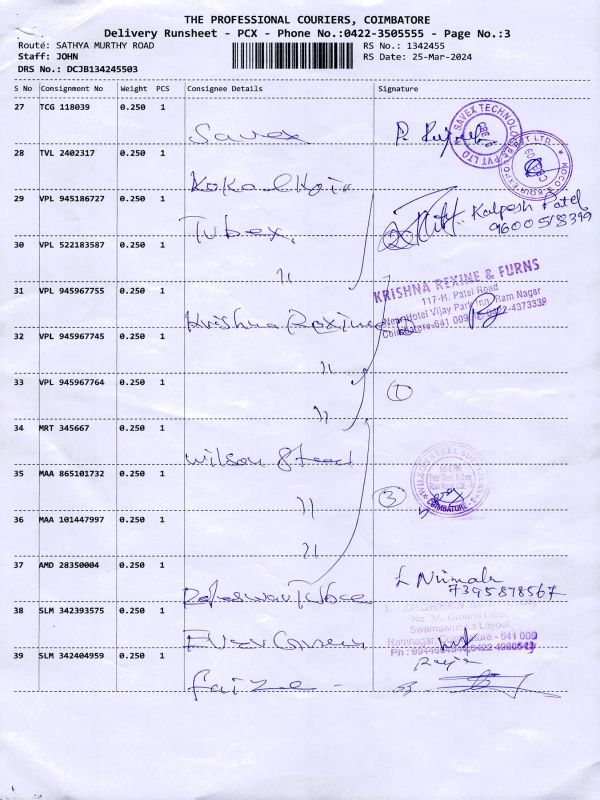 THE PROFESSIONAL COURIERS, COIMBATORE
Delivery Runsheet - PCX - Phone No.:0422-3505555 - Page No.:3
Route: SATHYA MURTHY ROAD RS No.: 1342455
Staff: JOHN RS Date: 25-Mar-2024
DRS No.: DCJB134245503
S No Consignment No Weight PCS Consignee Details Signature
27 TCG 118039 0.250 1
Savex
SAVEX TECHNOLOG PVT LTD
28 TVL 2402317 0.250 1
29 VPL 945186727 0.250 1
Tubex,
Kalpesh Patel
9600518399
30 VPL 522183587 0.250 1
"
31 VPL 945967755 0.250 1
Krishna Rexine
KRISHNA REXINE & FURNS
117-H, Patel Road
Near Hotel Vijay Park Inn, Ram Nagar
Coimbatore-641 009 0422-4373339
32 VPL 945967745 0.250 1
"
33 VPL 945967764 0.250 1
"
1
34 MRT 345667 0.250 1
Wilson Steel
35 MAA 865101732 0.250 1
"
3
COIMBATORE
36 MAA 101447997 0.250 1
"
37 AMD 28350004 0.250 1
L Nirmala
7395878567
38 SLM 342393575 0.250 1
EVERGREEN
No. 3/, Ground Floor,
Layout,
Ramnagar, Coimbatore - 641 009
39 SLM 342404959 0.250 1
Faize